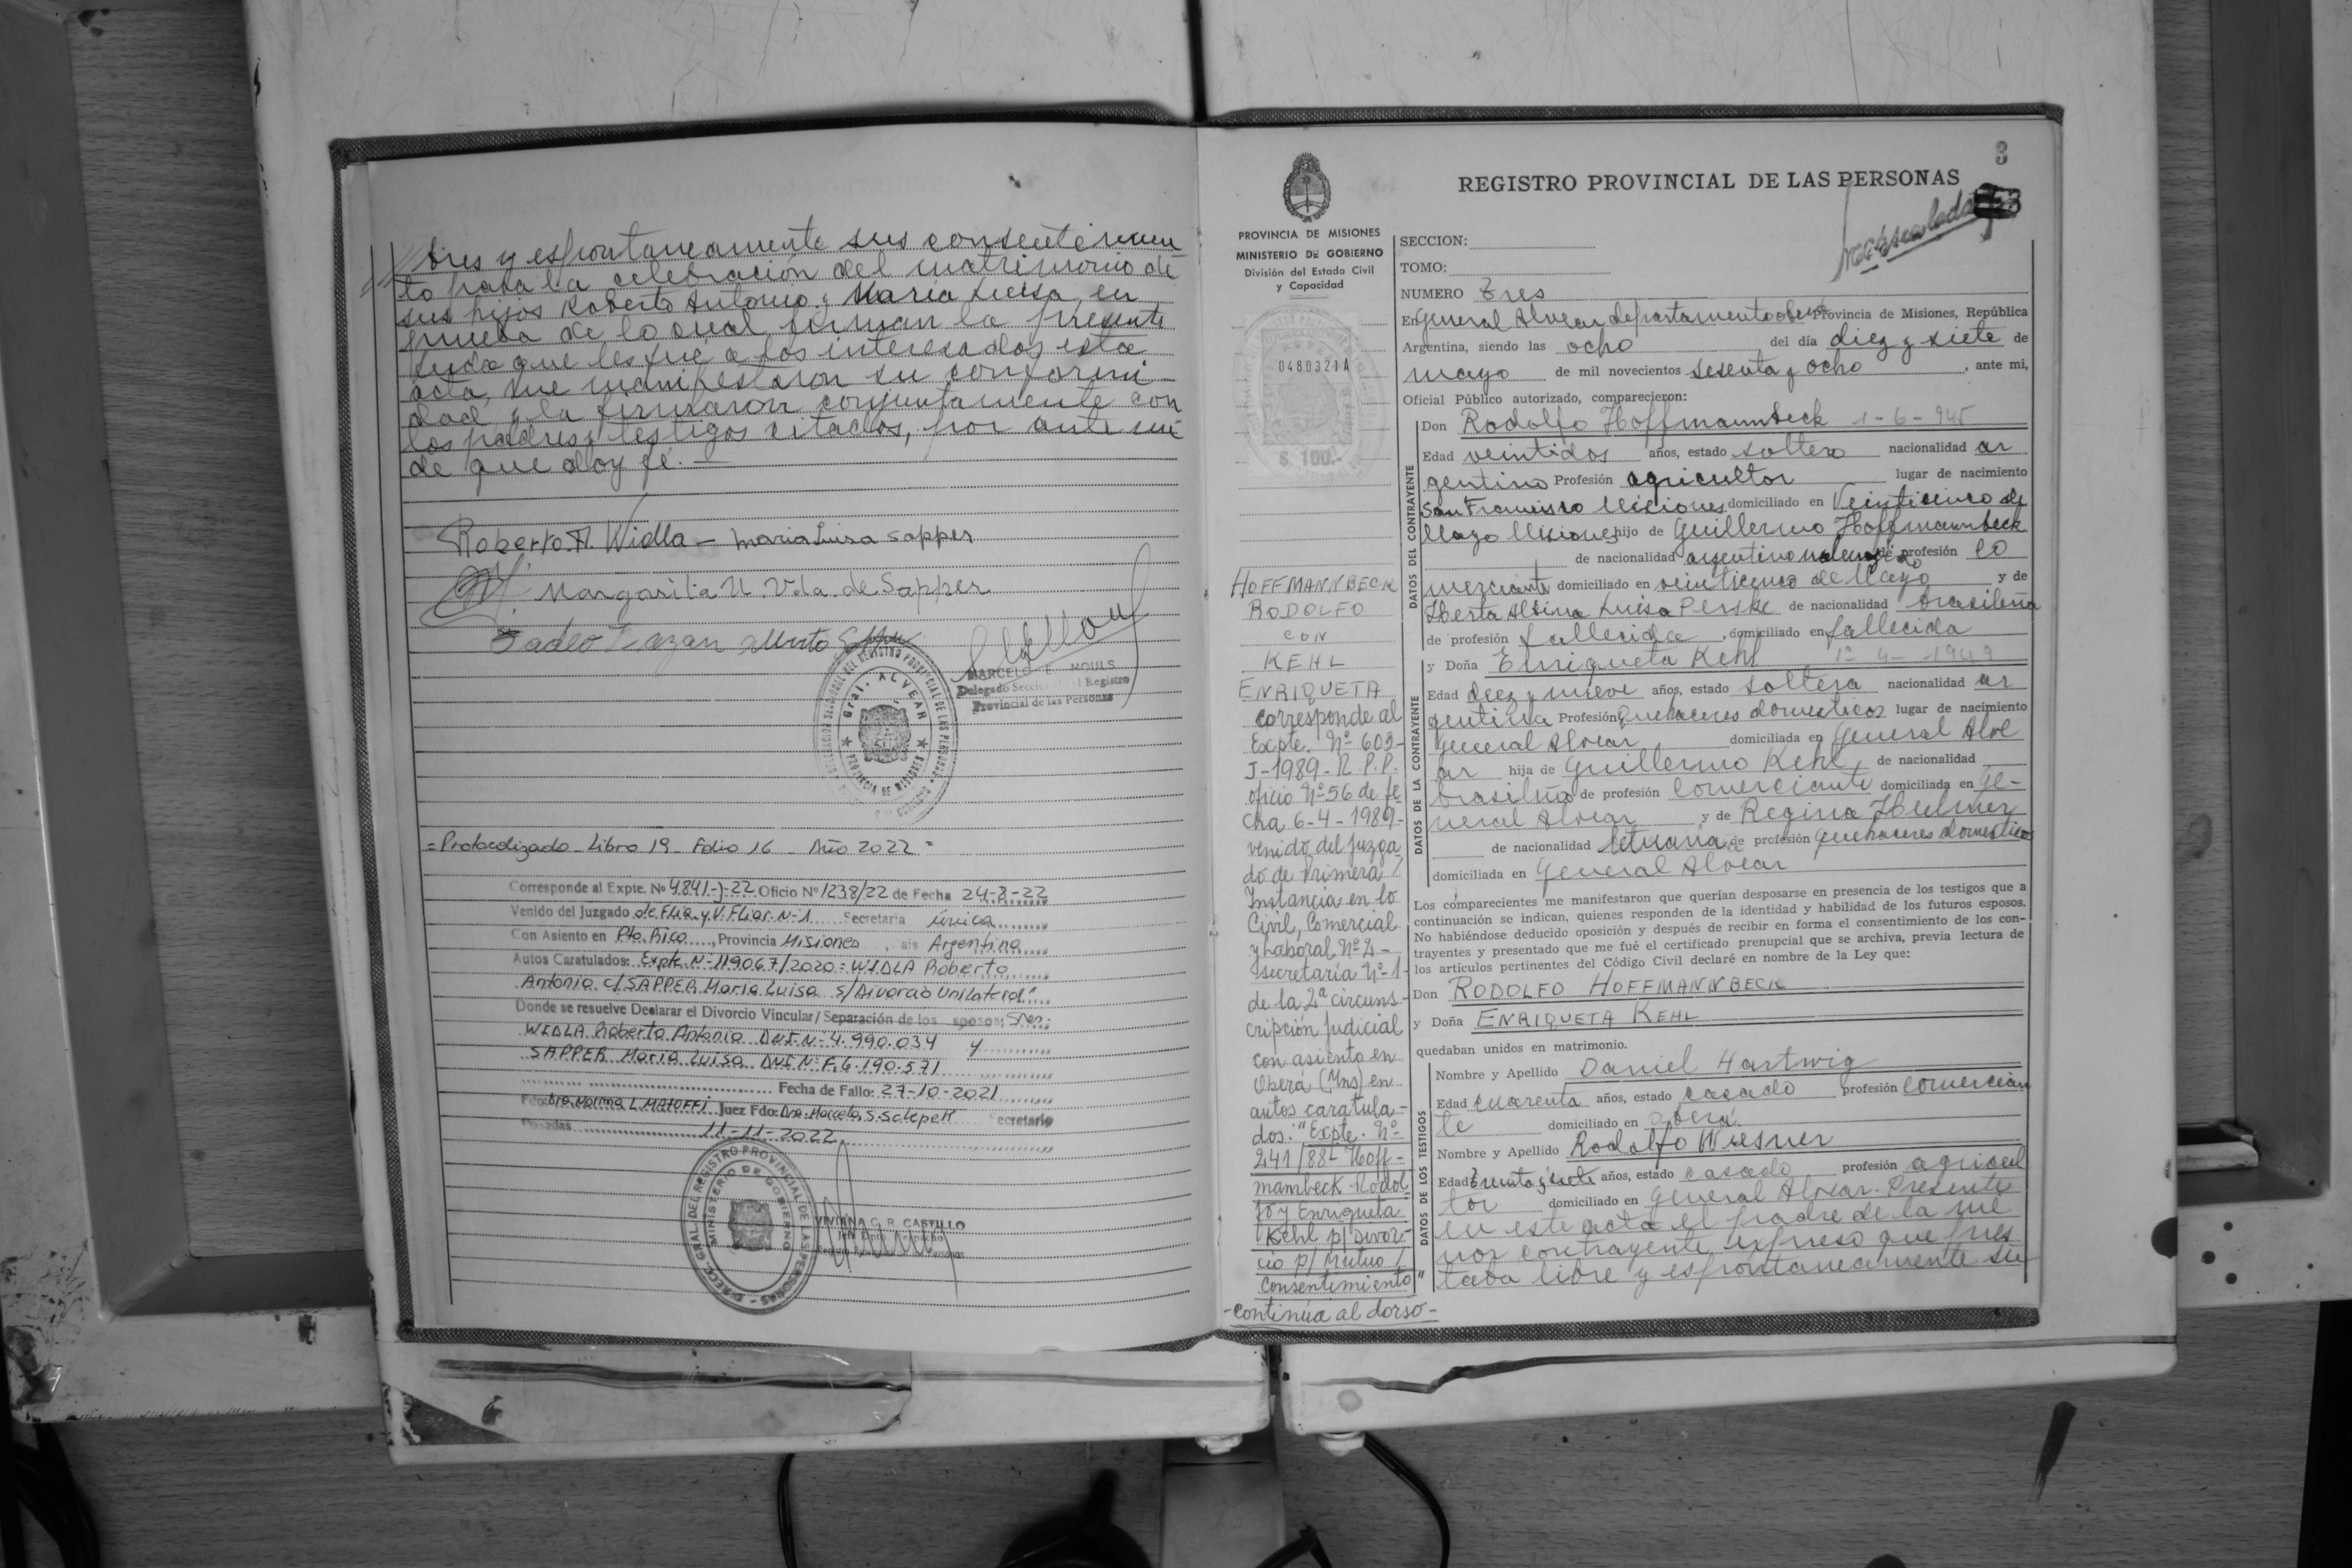 bres y espontaneamente sus consentimien
to para la celebración del matrimonio de
sus hijos Roberto Antonio y Maria Luisa, en
prueba de lo cual firman la presente
Leida que les fué a los interesados esta
acta, me manifestaron su conformi
dad y la firmaron conjuntamente con
los padres y testigos citados, por ante mi
de que doy fé.—
Roberto.A. Widla — Maria Luisa Sapper
Margarita N. Vda. de Sapper
Tadeo
Gral. ALVEAR
PROVINCIA DE MISIONES
MARCELO E. MOULS
Delegado Seccional Registro
Provincial de las Personas
= Protocolizado - Libro 19 - Folio 16 - Año 2022 =
Corresponde al Expte. Nº 4841-J-22 Oficio Nº 1238/22 de Fecha 24-8-22
Venido del Juzgado de Flia y V. Fliar. N-1 Secretaria única
Con Asiento en Pto. Rico, Provincia Misiones, ais Argentina
Autos Caratulados: Expte N-119067/2020 = WIDLA Roberto
Antonio c/ SAPPER Maria Luisa s/ Divorcio Unilateral"
Donde se resuelve Declarar el Divorcio Vincular/ Separación de los sposos; Sres:
WIDLA Roberto Antonio DNI N- 4.990.034 y
SAPPER Maria Luisa DNI N- F.6.190.571
Fecha de Fallo: 27-10-2021
Juez Fdo: Dra. Secretario
Posadas 11-11-2022
DIRECC. GRAL. DEL REGISTRO PROVINCIAL DE LAS PERSONAS
MINISTERIO DE GOBIERNO
VIVIANA C. R. CASTILLO
3
REGISTRO PROVINCIAL DE LAS PERSONAS
PROVINCIA DE MISIONES
MINISTERIO DE GOBIERNO
División del Estado Civil
y Capacidad
0480321A
$ 100.-
HOFFMANNBECK
RODOLFO
CON
KEHL
ENRIQUETA
corresponde al
Expte. Nº 609-
J-1989-R.P.P.
oficio Nº 56 de fe
cha 6-4-1989-
venido del Juzga
do de Primera
Instancia en lo
Civil, Comercial
y Laboral Nº 2-
secretaría Nº 1-
de la 2ª circuns-
cripción Judicial
con asiento en
Oberá (Mns) en
autos caratula-
dos: "Expte. Nº
241/88- Hoff-
mambeck Rodol
fo y Enriqueta
Kehl p/ Divor-
cio p/ Mutuo
Consentimiento"
-continúa al dorso-
SECCION:
TOMO:
NUMERO Tres
En General Alvear departamento Provincia de Misiones, República
Argentina, siendo las ocho del día diez y siete de
mayo de mil novecientos sesenta y ocho, ante mi,
Oficial Público autorizado, comparecieron:
DATOS DEL CONTRAYENTE
Don Rodolfo Hoffmannbeck 1-6-945
Edad veintidos años, estado soltero nacionalidad ar
gentino Profesión agricultor lugar de nacimiento
San Francisco Misiones domiciliado en Veinticinco de
Mayo Misiones hijo de Guillermo Hoffmannbeck
de nacionalidad argentino profesión co
merciante domiciliado en veinticinco de Mayo y de
Luisa Perske de nacionalidad brasileña
de profesión fallecida, domiciliado en fallecida
DATOS DE LA CONTRAYENTE
y Doña Enriqueta Kehl 1º-4-1949
Edad diez y nueve años, estado soltera nacionalidad ar
gentina Profesión quehaceres domesticos lugar de nacimiento
General Alvear domiciliada en General Alve
ar hija de Guillermo Kehl, de nacionalidad
brasileña de profesión Comerciante domiciliada en Ge-
neral Alvear y de Regina
de nacionalidad letuana de profesión quehaceres domestico
domiciliada en General Alvear
Los comparecientes me manifestaron que querían desposarse en presencia de los testigos que a
continuación se indican, quienes responden de la identidad y habilidad de los futuros esposos.
No habiéndose deducido oposición y después de recibir en forma el consentimiento de los con-
trayentes y presentado que me fué el certificado prenupcial que se archiva, previa lectura de
los artículos pertinentes del Código Civil declaré en nombre de la Ley que:
Don RODOLFO HOFFMANNBECK
y Doña ENRIQUETA KEHL
quedaban unidos en matrimonio.
DATOS DE LOS TESTIGOS
Nombre y Apellido Daniel Hartwig
Edad cuarenta años, estado casado profesión comercian
te domiciliado en oberá.
Nombre y Apellido Rodolfo Wiesner
Edad treinta y siete años, estado casado profesión agricul
tor domiciliado en General Alvear. Presente
en este acta el padre de la me
nor contrayente expreso que pres
taba libre y espontaneamente su